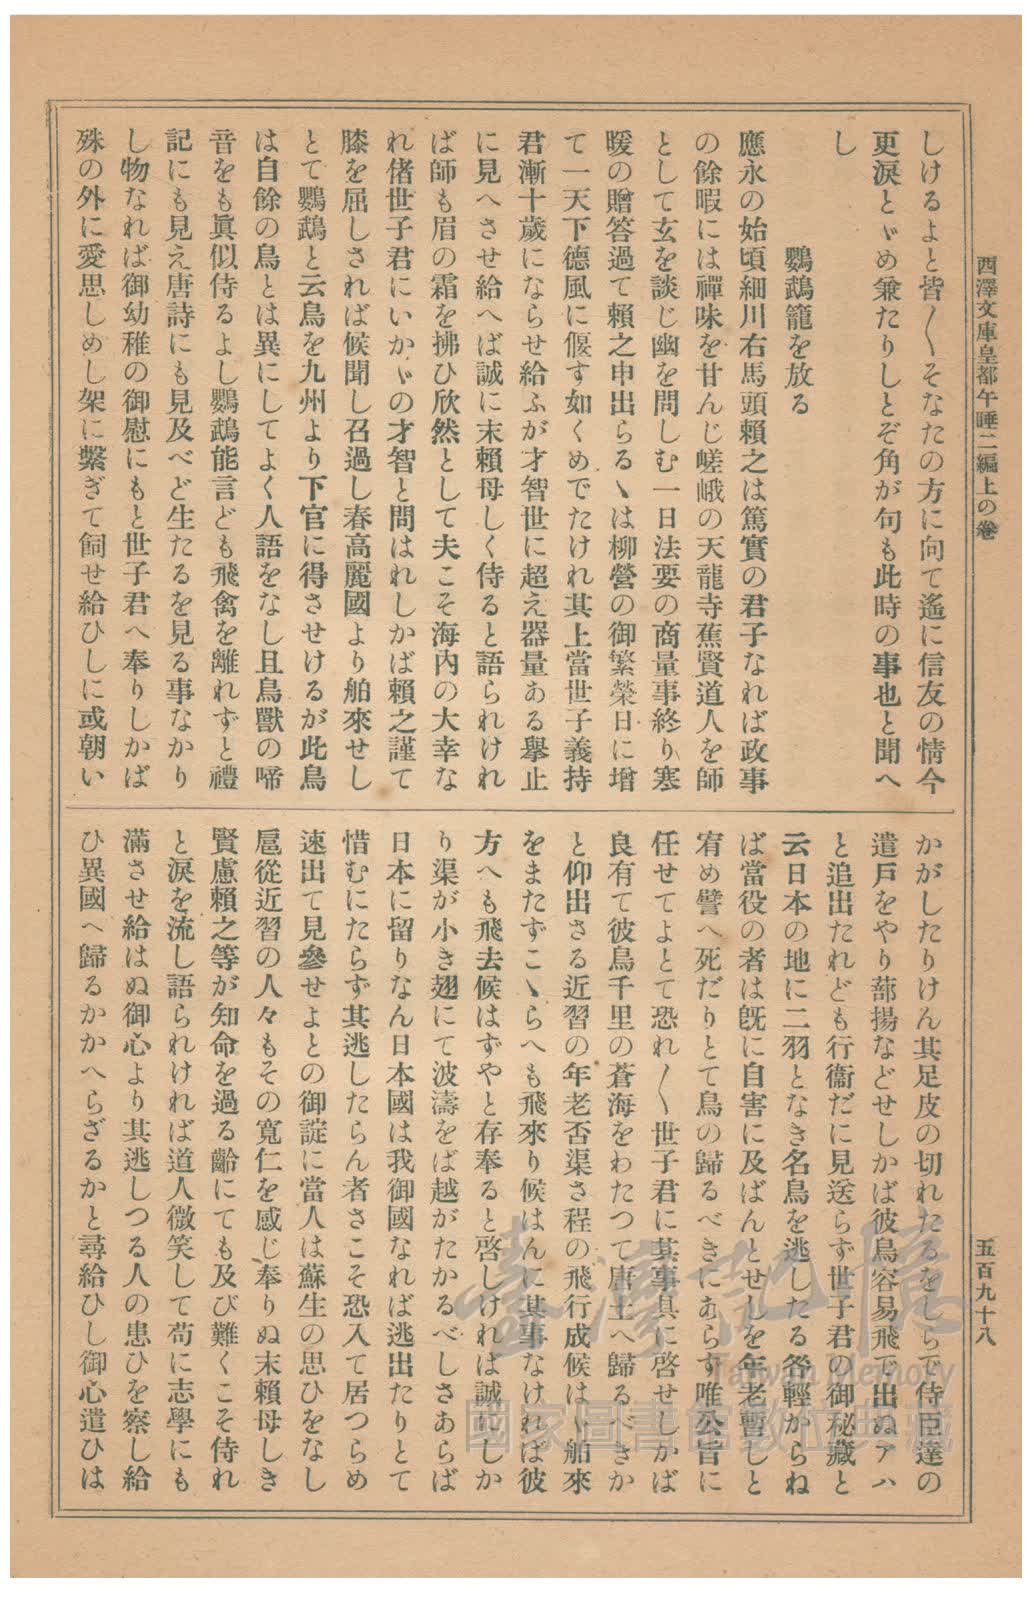 西澤文庫皇都午睡二編上の卷
五百九十八
しけるよと皆〳〵そなたの方に向て遙に信友の情今
更淚とゞめ兼たりしとぞ角が句も此時の事也と聞へ
し
鸚鵡籠を放る
應永の始頃細川右馬頭賴之は篤實の君子なれば政事
の餘暇には禪味を甘んじ嵯峨の天龍寺蕉賢道人を師
として玄を談じ幽を問しむ一日法要の商量事終り寒
暖の贈答過て賴之申出らるゝは柳營の御繁榮日に增
て一天下德風に偃す如くめでたけれ其上當世子義持
君漸十歲にならせ給ふが才智世に超え器量ある擧止
に見へさせ給へば誠に末賴母しく侍ると語られけれ
ば師も眉の霜を拂ひ欣然として夫こそ海內の大幸な
れ偖世子君にいかゞの才智と問はれしかば賴之謹て
膝を屈しされば候聞し召過し春高麗國より舶來せし
とて鸚鵡と云鳥を九州より下官に得させけるが此鳥
は自餘の鳥とは異にしてよく人語をなし且鳥獸の啼
音をも眞似侍るよし鸚鵡能言ども飛禽を離れずと禮
記にも見え唐詩にも見及べど生たるを見る事なかり
し物なれば御幼稚の御慰にもと世子君へ奉りしかば
殊の外に愛思しめし架に繫ぎて飼せ給ひしに或朝い
かがしたりけん其足皮の切れたるをしらで侍臣達の
遣戶をやり蔀揚などせしかば彼鳥容易飛で出ぬアハ
と追出たれども行衞だに見送らず世子君の御秘藏と
云日本の地に二羽となき名鳥を逃したる咎輕からね
ば當役の者は旣に自害に及ばんとせしを年老暫しと
宥め譬へ死だりとて鳥の歸るべきにあらず唯公旨に
任せてよとて恐れ〳〵世子君に其事具に啓せしかば
良有て彼鳥千里の蒼海をわたつて唐土へ歸るべきか
と仰出さる近習の年老否渠さ程の飛行成候はゞ舶來
をまたずこゝらへも飛來り候はんに其事なければ彼
方へも飛去候はずやと存奉ると啓しければ誠にしか
り渠が小き翅にて波濤をば越がたかるべしさあらば
日本に留りなん日本國は我御國なれば逃出たりとて
惜むにたらず其逃したらん者さこそ恐入て居つらめ
速出て見參せよとの御諚に當人は蘇生の思ひをなし
扈從近習の人々もその寬仁を感じ奉りぬ末賴母しき
賢慮賴之等が知命を過る齡にても及び難くこそ侍れ
と淚を流し語られければ道人微笑して苟に志學にも
滿させ給はぬ御心より其逃しつる人の患ひを察し給
ひ異國へ歸るかかへらざるかと尋給ひし御心遣ひは
臺灣記憶
Taiwan Memory
國家圖書館數位典藏